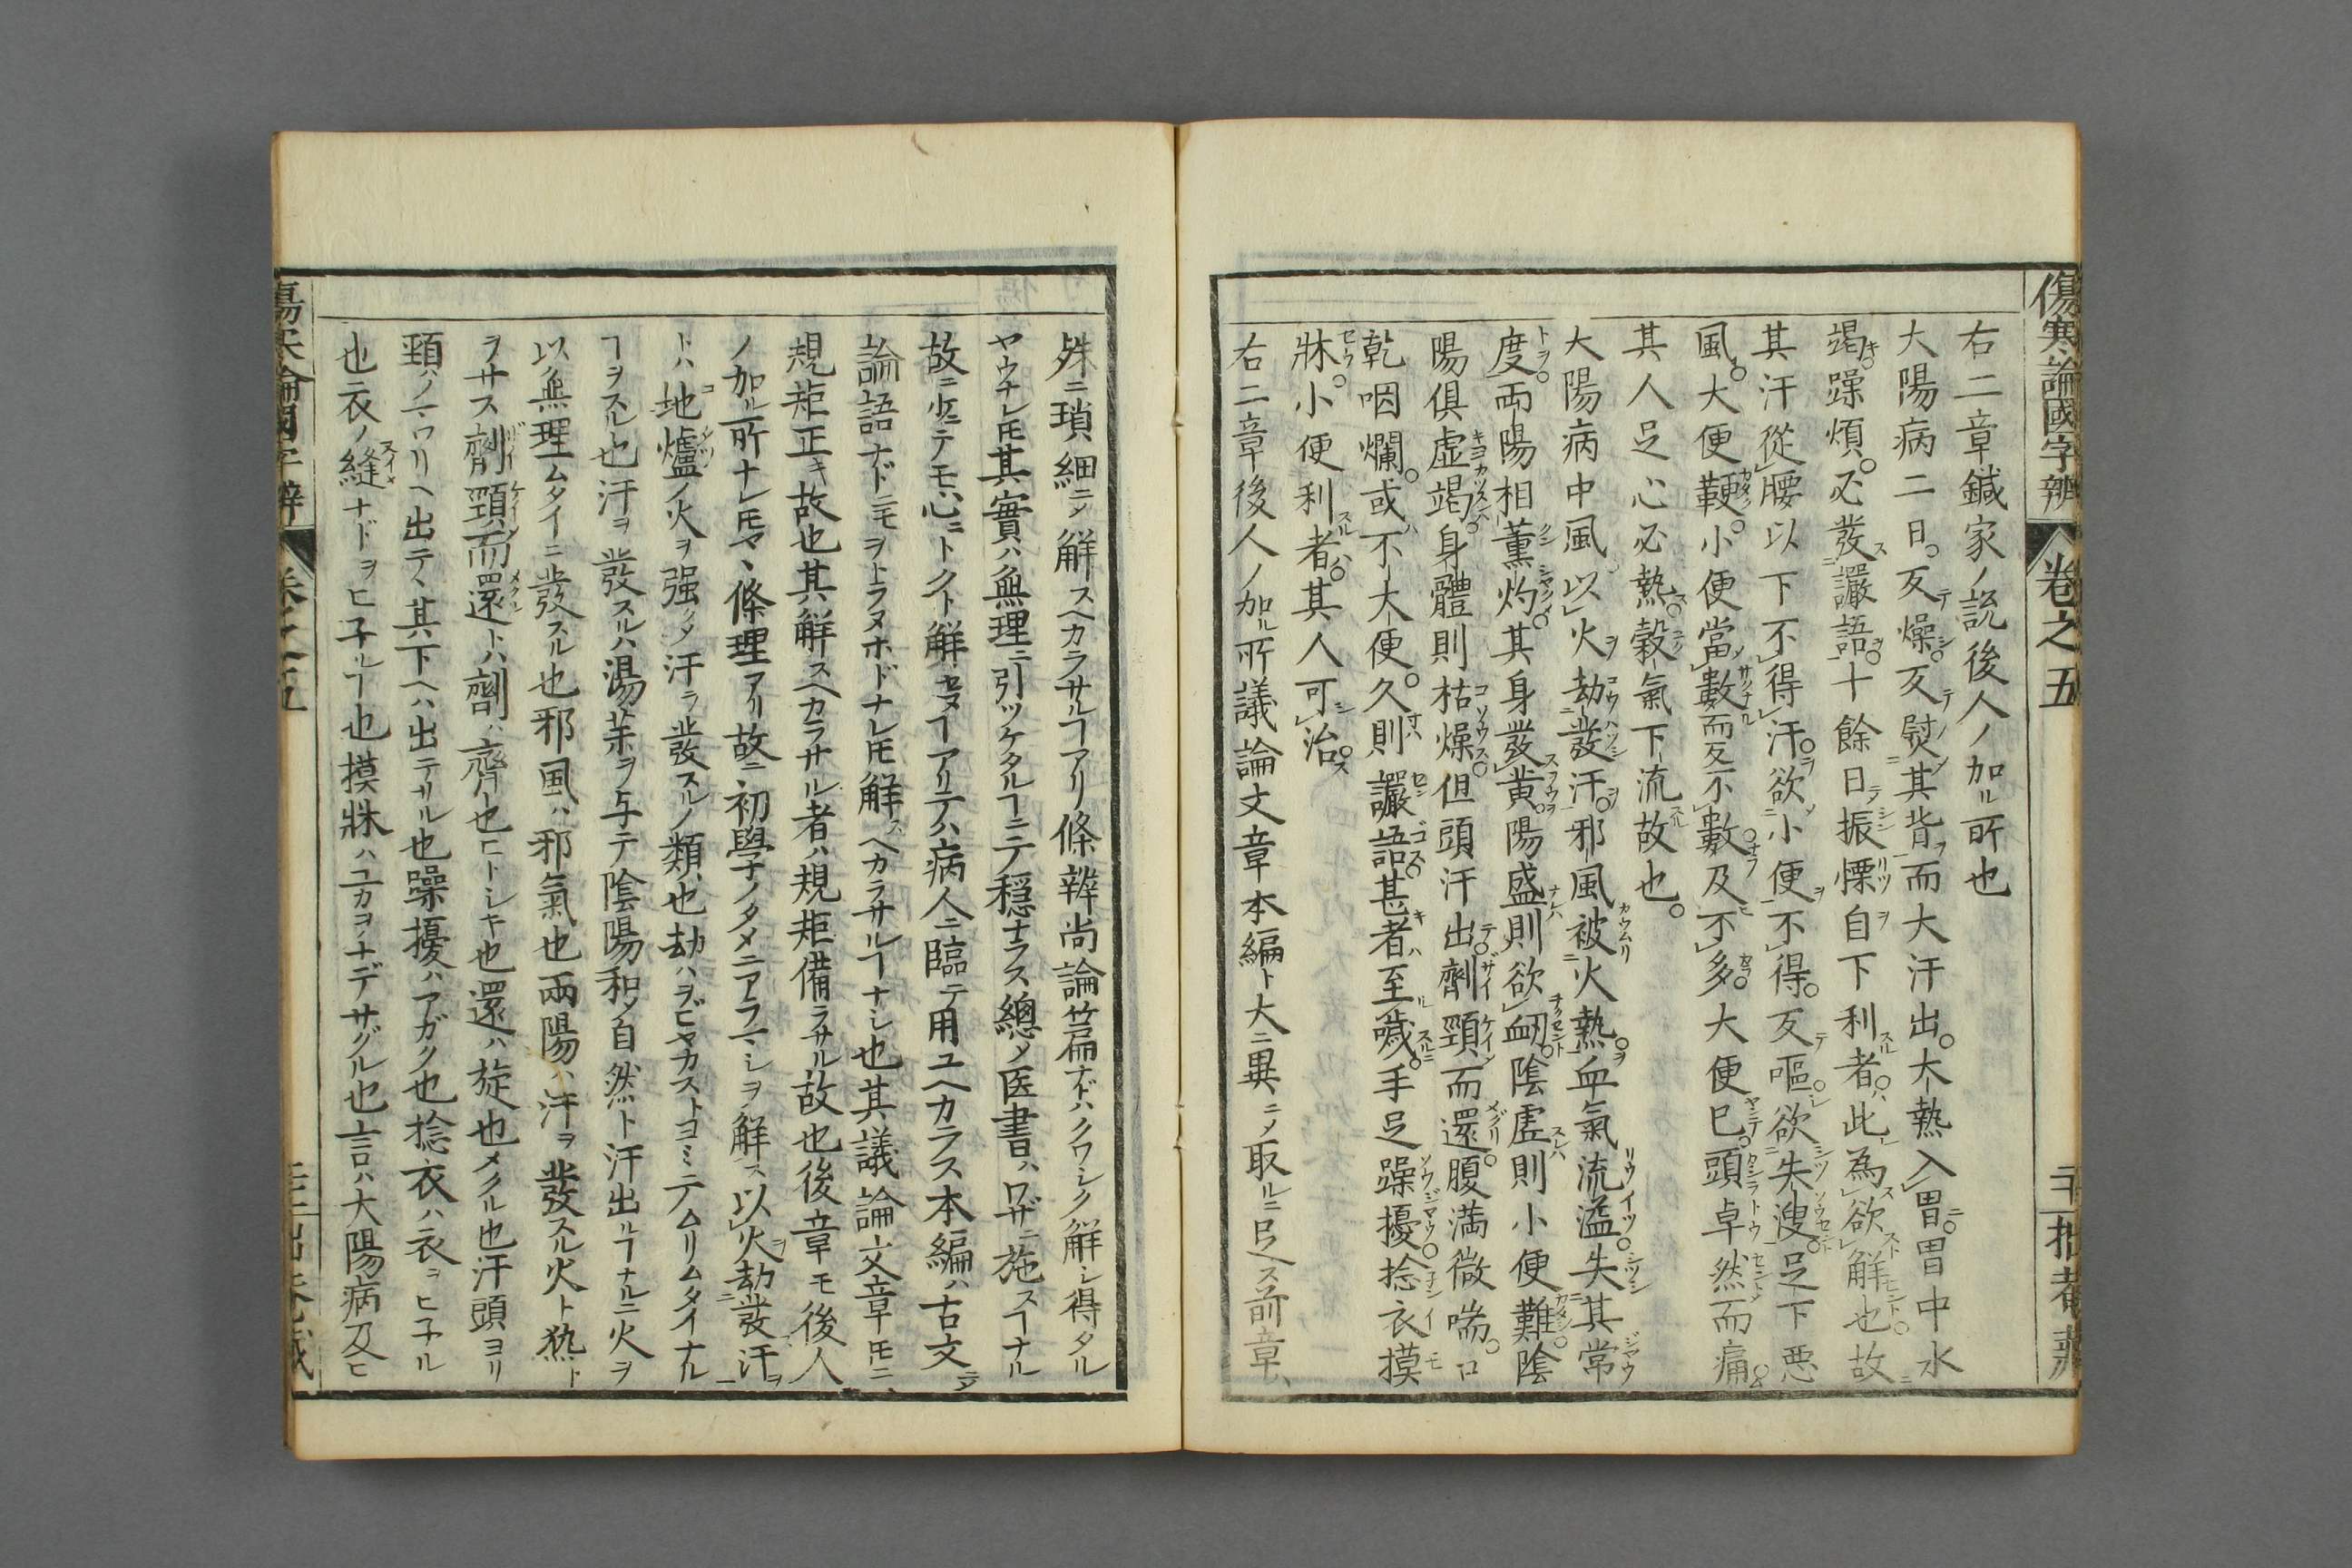 傷寒論國字辨 卷之五
右二章鍼家ノ説後人ノ加ル所也
大陽病二日。反燥。反熨其背而大汗出。大熱入胃。胃中水
竭。躁煩。必發讝語。十餘日振慄自下利者。此為欲解也故
其汗從腰以下不得汗。欲小便不得。反嘔。欲失溲。足下悪
風。大便鞕。小便當數而反不數及不多。大便已。頭卓然而痛。
其人足心必熱。穀氣下流故也。
大陽病中風以火劫發汗。邪風被火熱。血氣流溢。失其常
度。両陽相薫灼。其身發黄。陽盛則欲衄。陰虚則小便難。陰
陽俱虚竭。身體則枯燥。但頭汗出。劑頸而還。腹満微喘。口
乾咽爛。或不大便。久則讝語。甚者至噦。手足躁擾。捻衣摸
牀。小便利者。其人可治。
右二章後人ノ加ル所議論文章本編ト大ニ異ニメ取ルニ足ス前章、
殊ニ瑣細ニメ解スヘカラサルヿアリ條辨尚論篇ナドハクワシク解シ得タル
ヤウナレ𪜈其實ハ無理ニ引ツケタルヿニテ穏ナラス總メ医書ハワザニ施スヿナル
故ニ少ニテモ心ニトクト解セヌヿアリテハ病人ニ臨テ用ユヘカラス本編ハ古文ニメ
論語ナドニモヲトラヌホドナレ𪜈解スヘカラサルヿナシ也其議論文章𪜈ニ
規矩正キ故也其解スヘカラサル者ハ規矩備ラサル故也後章モ後人
ノ加ル所ナレ𪜈ヤヽ條理アリ故ニ初學ノタメニアラマシヲ解ス以火劫發汗
トハ地爐ノ火ヲ强クメ汗ヲ發スルノ類也劫ハヲビヤカストヨミテムリムタイナル
ヿヲスル也汗ヲ發スルハ湯茶ヲ与テ陰陽和メ自然ト汗出ルヿナルニ火ヲ
以無理ムタイニ發スル也邪風ハ邪氣也兩陽ハ汗ヲ發スル火ト熱ト
ヲサス劑頸而還トハ劑ハ齊也ヒトシキ也還ハ旋也メクル也汗頭ヨリ
頸ノマワリヘ出テ其下ヘハ出テサル也躁擾ハアガク也捻衣ハ衣ヲヒ子ル
也衣ノ縫ナドヲヒ子ルヿ也摸牀ハユカヲナデサグル也言ハ大陽病及ヒ